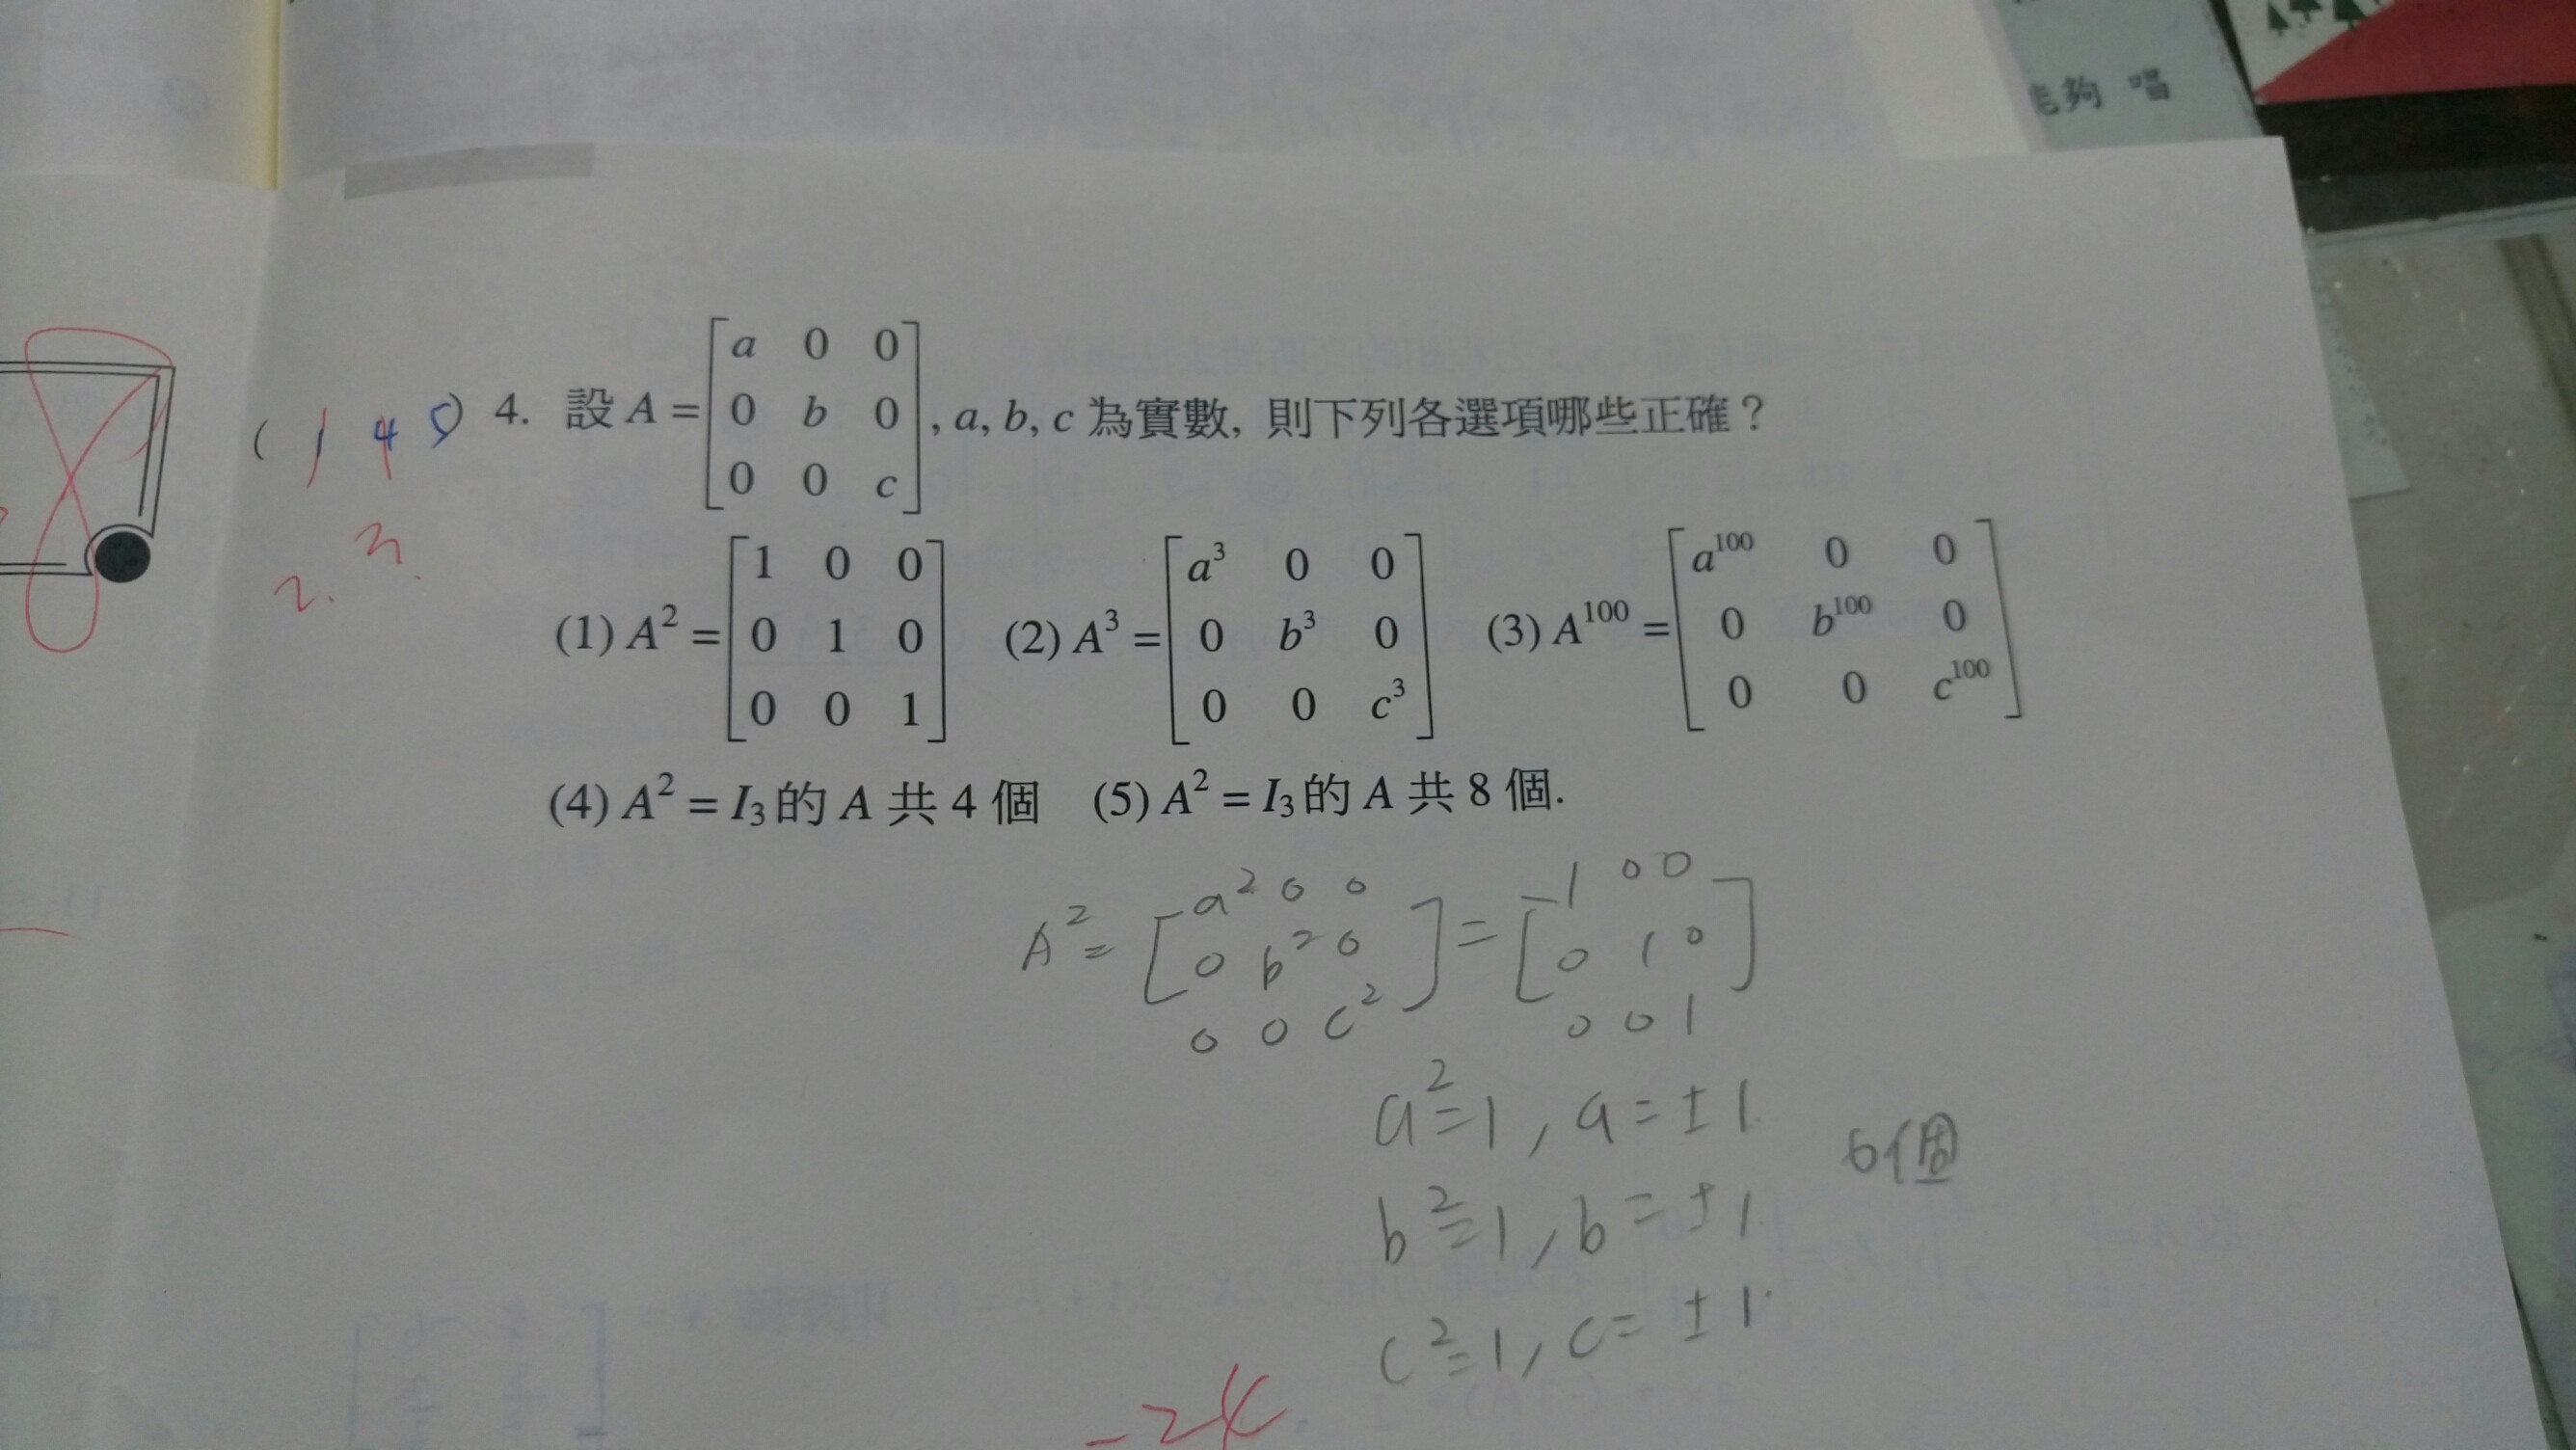 能夠 唱
( 1 4 5 ) 4. 設 A = [ a 0 0 ; 0 b 0 ; 0 0 c ] , a, b, c 為實數, 則下列各選項哪些正確？
2. 3.
(1) A² = [ 1 0 0 ; 0 1 0 ; 0 0 1 ] (2) A³ = [ a³ 0 0 ; 0 b³ 0 ; 0 0 c³ ] (3) A¹⁰⁰ = [ a¹⁰⁰ 0 0 ; 0 b¹⁰⁰ 0 ; 0 0 c¹⁰⁰ ]
(4) A² = I₃ 的 A 共 4 個 (5) A² = I₃ 的 A 共 8 個.
A² = [ a² 0 0 ; 0 b² 0 ; 0 0 c² ] = [ 1 0 0 ; 0 1 0 ; 0 0 1 ]
a² = 1 , a = ± 1
6個
b² = 1 , b = ± 1
c² = 1 , c = ± 1